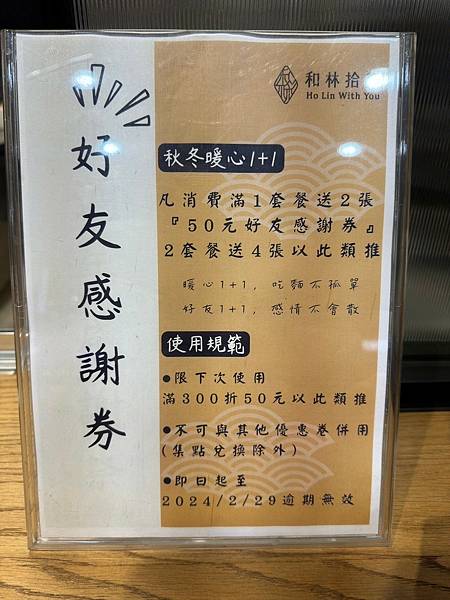 好友感謝券
和林拾
Ho Lin With You
秋冬暖心1+1
凡消費滿1套餐送2張
『50元好友感謝券』
2套餐送4張以此類推
暖心1+1, 吃麵不孤單
好友1+1, 感情不會散
使用規範
●限下次使用
滿300折50元以此類推
●不可與其他優惠卷併用
(集點兌換除外)
●即日起至
2024/2/29逾期無效